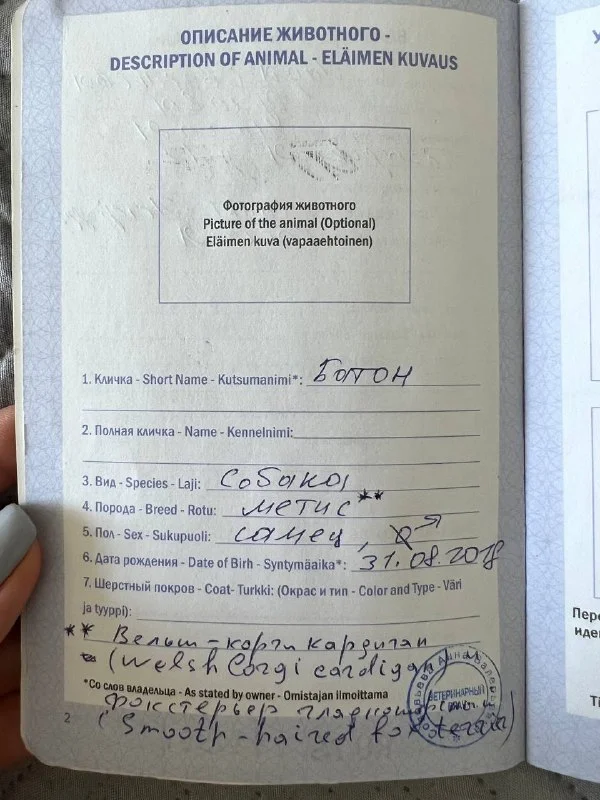 ОПИСАНИЕ ЖИВОТНОГО -
DESCRIPTION OF ANIMAL - ELÄIMEN KUVAUS
Фотография животного
Picture of the animal (Optional)
Eläimen kuva (vapaaehtoinen)
1. Кличка - Short Name - Kutsumanimi*: Батон
2. Полная кличка - Name - Kennelnimi:
3. Вид - Species - Laji: Собака
4. Порода - Breed - Rotu: метис **
5. Пол - Sex - Sukupuoli: самец, ♂
6. Дата рождения - Date of Birh - Syntymäaika*: 31.08.2018
7. Шерстный покров - Coat- Turkki: (Окрас и тип - Color and Type - Väri
ja tyyppi):
** Вельш-корги кардиган
(Welsh Corgi cardigan)
*Со слов владельца - As stated by owner - Omistajan ilmoittama
фокстерьер гладкошерстный
(Smooth-haired fox terrier)
ВЕТЕРИНАРНЫЙ
ВРАЧ
2
Пере
иде
Ti